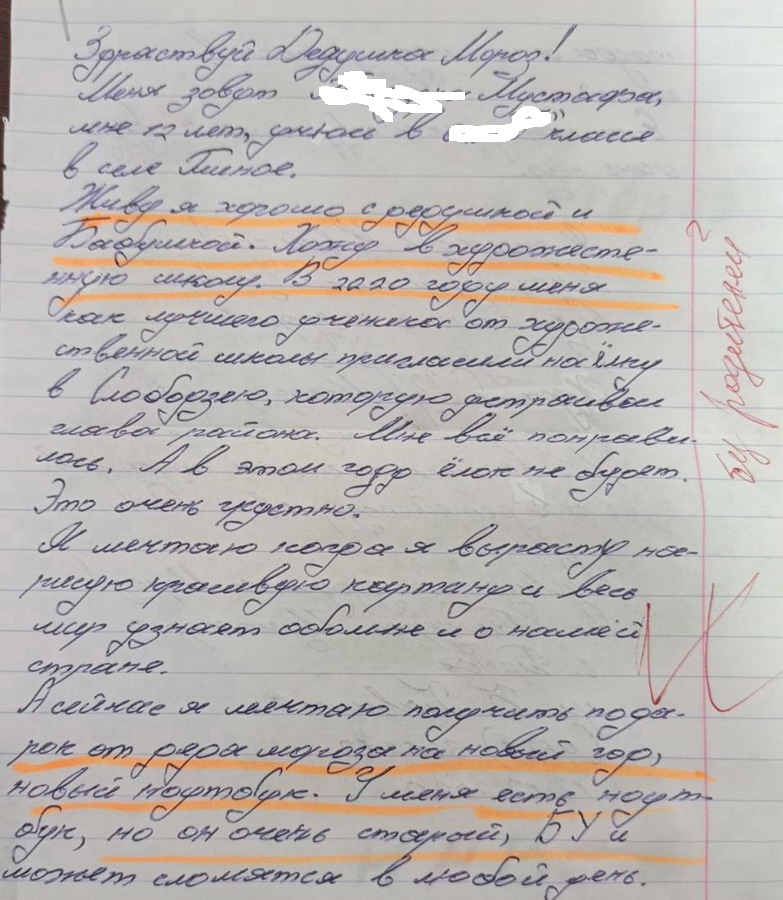 Здраствуй Дедушка Мороз!
Меня зовут Мустафа,
мне 12 лет, учюсь в классе
в селе Глиное.
Живу я хорошо с дедушкой и
Бабушкой. Хожу в художесте-
нную школу. В 2020 году меня
как лучшего ученика от художе-
ственной школы пригласили на ёлку
в Слободзею, которую устраивал
глава района. Мне всё понрави-
лось. А в этом году ёлок не будет.
Это очень грустно.
Я мечтаю когда я вырасту на-
рисую красивую картину и весь
мир узнает обо мне и о нашей
стране.
А сейчас я мечтаю получить пода-
рок от деда мороза на новый год,
новый ноутбук. У меня есть ноут-
бук, но он очень старый, БУ и
может сломятся в любой день.
родителей?